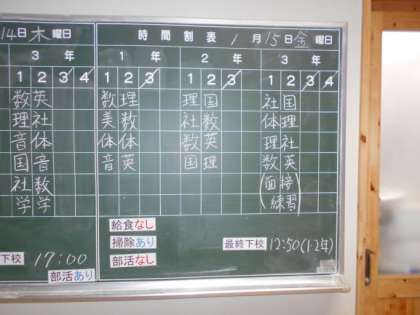 14日木曜日 時間割表 1月15日金曜日
3年 1年 2年 3年
1 2 3 4 1 2 3 1 2 3 1 2 3 4
数 英 数 理 理 国 社 国
理 社 美 数 社 数 体 理
音 体 体 体 数 英 理 社
国 音 音 英 国 理 数 英
社 数 (面接
学 学 練習)
給食なし
掃除あり
下校 17:00 最終下校 12:50(1・2年)
部活あり 部活なし